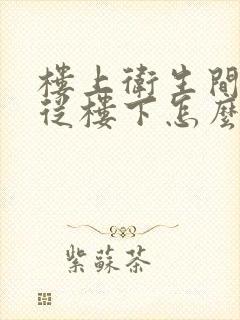 樓上衛生間
從樓下怎麼
紫蘇茶